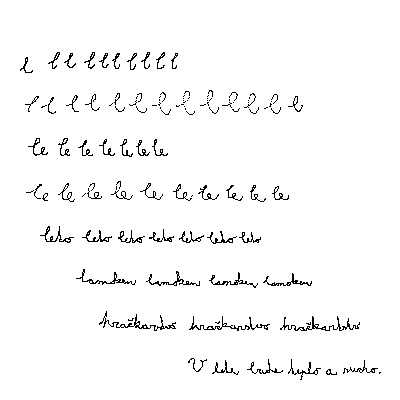 l l l l l l l l l l
l l l l l l l l l l l l l
le le le le le le le
le le le le le le le le le le
leto leto leto leto leto leto leto
hračkarstvo hračkarstvo hračkarstvo
V lete bude teplo a sucho.